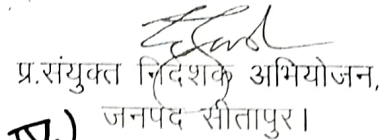 प्र.संयुक्त निदेशक अभियोजन,
जनपद सीतापुर।